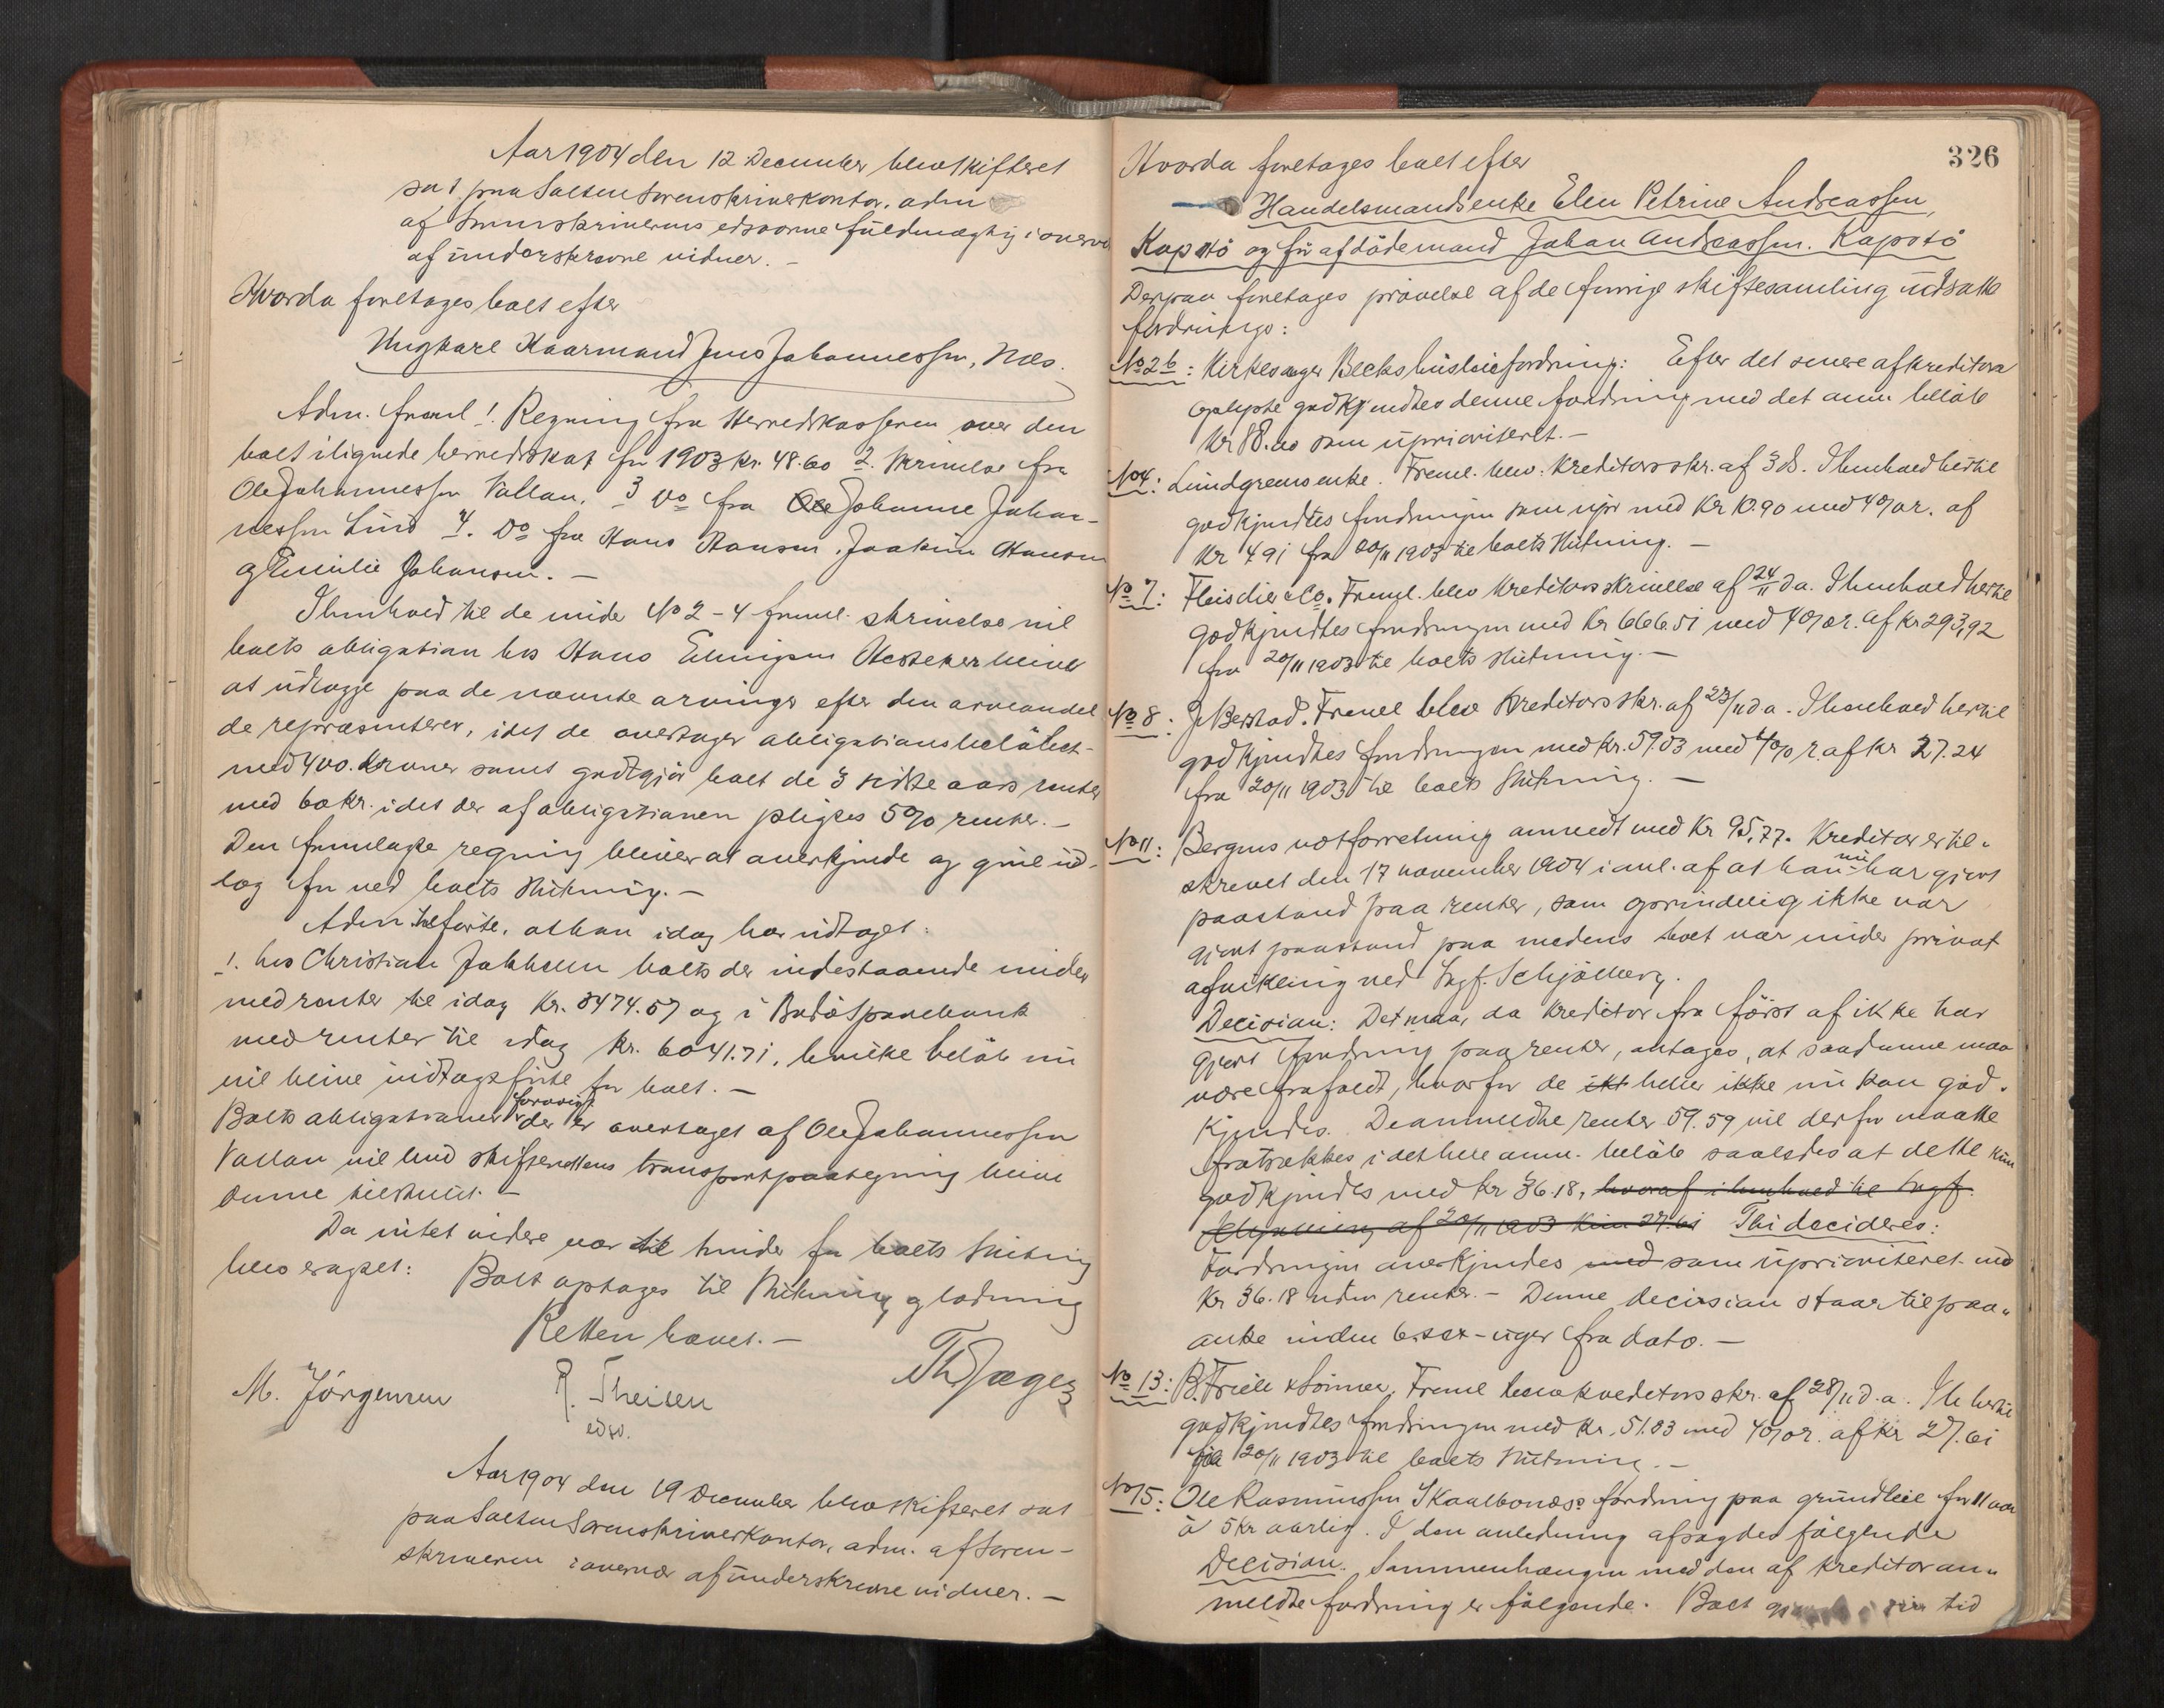 Aar 1904 den 12 December blev skifteret
sat paa Salten Sorenskriverkontor, adm
af Sorenskriverens edsvorne fuldmægtig i overvær
af underskrevne vidner. –
Hvorda foretages boet efter
Ungkarl Kaarmand Jens Johannessen, Næs.
Adm. freml 1. Regning fra Herredskassereren over den
boet ilignede herredsskat for 1903 kr. 48.60 2. Skrivelse fra
Ole Johannessen Vallan, 3 Do fra Ole Johanne Johan-
nessen Lund 4. Do fra Hans Hansen, Joakim Hansen
og Emilie Johansen. –
I henhold til de under No 2 – 4 freml. skrivelse vil
boets obligation hos Hans blive
at udlægge paa de nævnte arvinger efter den arveandel
de repræsenterer, idet de overtager obligationsbeløbet
med 400. kroner samt godtgjør boet de 3 sidste aars renter
med 60 kr. idet der af obligationen pligtes 5% renter. –
Den fremlagte regning bliver at anerkjende og give ud-
læg for ved boets slutning. –
Adm. tilførte, at han idag har udtaget:
1. hos Christian Jakhelln boets der indestaaende midler
med renter til idag Kr. 3474.57 og i Bodø Sparebank
med renter til idag kr. 6041.71, hvilke beløb nu
vil blive indtægtsført for boet. –
Boets obligationer forøvrigt der er overtaget af Ole Johannessen
Vallan vil med skifterettens transportpaategning blive
denne tilstillet. –
Da intet videre var til hinder for boets slutning
blev eragtet: Boet optages til slutning og lodning
Retten hævet. –
Th Jæger
M. Jörgensen R. Theisen
edsv.
Aar 1904 den 19 December blev skifteret sat
paa Salten Sorenskriverkontor, adm. af Soren-
skriveren i overvær af underskrevne vidner. –
326
Hvorda foretages boet efter
Handelsmandsenke Elen Petrine Andreassen,
Kapstö og før afdöde mand Johan Andreassen. Kapstö
Derpaa foretages prøvelse af de i forrige skiftesamling udsatte
fordringer:
No 2b: Kirkesanger Becks husleiefordring: Efter det senere af kreditor
oplyste godkjendtes denne fordring med det anm. beløb
kr 18.00 som uprioriteret. –
No 4: Lundgreens enke. Freml. blev kreditors skr. af 3 ds. I henhold hertil
godkjendtes fordringen som upr med Kr 10.90 med 4% r. af
kr 4 91 fra 20/11 1903 til boets slutning. –
No 7: Fleischer & Co. Freml. blev kreditors skrivelse af 24/11 d a. I henhold hertil
godkjendtes fordringen med Kr 666.51 med 4% r. af kr 293,92
fra 20/11 1903 til boets slutning. –
No 8: J. Berstad. Freml blev kreditors skr. af 23/11 d a. I henhold hertil
godkjendtes fordringen med kr. 59.03 med 4% r. af kr 27.24
fra 20/11 1903 til boets slutning. –
No 11: Bergens notforretning anmeldt med Kr 95.77. Kreditor er til-
skrevet den 17 november 1904 i anl. af at han nu har gjort
paastand paa renter, som oprindelig ikke var
gjort paastand paa medens boet var under privat
afvikling ved Sagf. Schjölberg.
Decision: Det maa, da kreditor fra först af ikke har
gjort fordring paa renter, antages, at saadanne maa
være frafaldt, hvorfor de ikk heller ikke nu kan god-
kjendes. De anmeldte renter 59.59 vil derfor maatte
fratrækkes i det hele anm. beløb saaledes at dette kun
godkjendes med kr 36.18, hvoraf i henhold til Sagf.
af 20/11 1903 kun 27.61 Thi decideres:
Fordringen anerkjendes med som uprioriteret med
kr 36.18 uden renter. – Denne decision staar til paa-
anke inden 6 – sex – uger fra dato. –
No 13: B. Friele & Sönner. Freml blev kreditors skr. af 28/11 d. a. I h hertil
godkjendtes fordringen med kr. 51.83 med 4% r. af kr 27.61
fra 20/11 1903 til boets slutning. –
No 15: Ole Rasmussen Skaalbonæs's fordring paa grundleie for 11 aar
à 5 kr aarlig. I den anledning afsagdes følgende
Decision. Sammenhængen med den af kreditor an-
meldte fordring er følgende. Boet tid